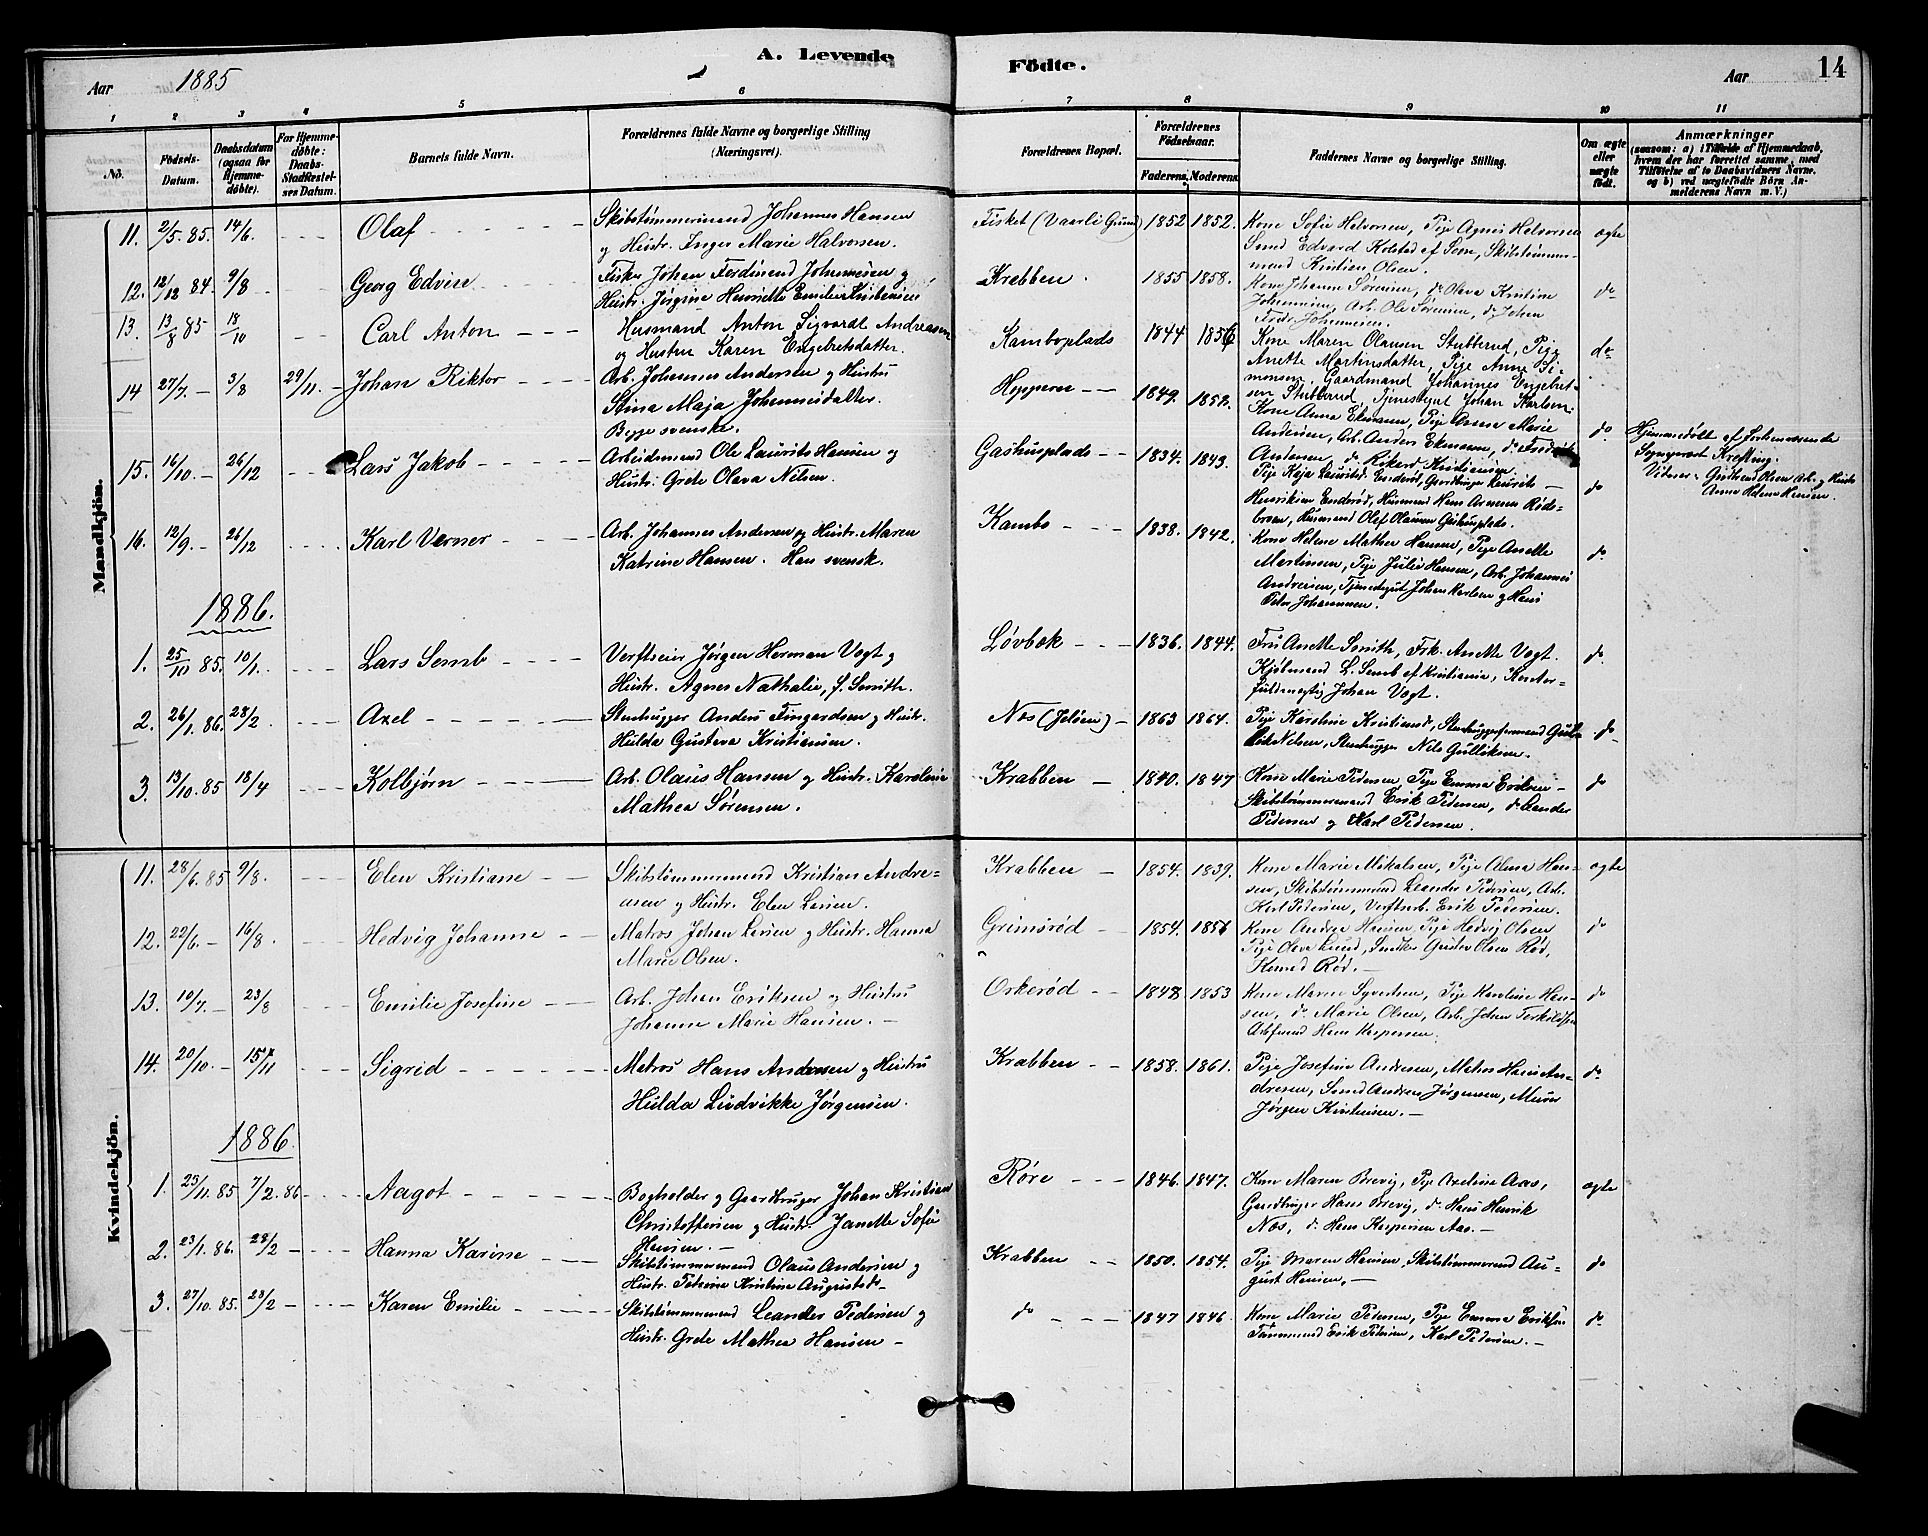 A. Levende Födte.
Aar 1885
Aar 14
1 2 3 4 5 6 7 8 9 10 11
No.
Fødsels-Datum.
Daabsdatum (ogsaa for Hjemmedøbte).
For Hjemmedøbte: Daabs-Stadfæstelses Datum.
Barnets fulde Navn.
Forældrenes fulde Navne og borgerlige Stilling (Næringsvei).
Forældrenes Bopæl.
Forældrenes Fødselsaar.
Faderens. Moderens.
Faddernes Navne og borgerlige Stilling.
Om ægte eller uægte født.
Anmærkninger (saasom: a) i Tilfælde af Hjemmedaab, hvem der har forrettet samme, med Tilføielse af to Daabsvidners Navne, og b) ved uægtefødte Børn Anmelderens Navn m. V.)
Mandkjön.
11. 2/5. 85. 14/6. Olaf
Skibstømmermand Johannes Hansen
og Hustr. Inger Marie Halvorsen.
Fisket (Vaarli Grund) 1852 1852.
Kone Sofie Helvorsen, Pige Agnes Helvorsen
Smed Edvard Kolstad af Sem, Skibstømmer-
mand Kristian Olsen. ægte
12. 12/12 84. 9/8 Georg Edvin
Fisker Johan Ferdinand Johannesen og
Hustr. Jørgine Henriette Emilie Kristensen
Krabben. 1855 1858.
Kone Johanne Sørensen, do Olava Kristine
Johannesen, Arb. Ole Sørensen, do Johan
Fredr. Johannesen. do
13. 13/8 85 18/10 Carl Anton
Husmand Anton Sigvardt Andreasen
og Hustru Karen Engebretsdatter.
Kamboplads 1844 1856
Kone Maren Olausen Stubberud, Pige
Anette Martinsdatter, Pige Anne Si-
monsen, Gaardmand Johannes Engebret-
sen Stubberud, Tjenestegut Johan Karlsen. do
14 27/7. 3/8 29/11. Johan Riktor
Arb. Johannes Andersen og Hustru
Stina Maja Johannesdatter.
Begge svenske.
Hoppern 1849. 1858.
Kone Anna Ekmann, Pige Anna Marie
Andersen, Arb. Anders Ekmann, do Fredrik
Andersen, do Rikard Kristiansen. do
Hjemmedøbt af
Sogneprest Krefting.
Vidner: Hansen.
15. 16/10. 26/12 Lars Jakob
Arbeidsmand Ole Laurits Hansen og
Hustr. Grete Olava Nilsen.
Gashusplads 1834. 1843.
Pige Kaja Lauritsd. Enderød, Gaardbruger Laurits
Henriksen Enderød, Husmand Hans Arnesen Røds-
broen, Husmand Olaf Olausen Gashusplads. do
16. 12/9. 26/12 Karl Verner
Arb. Johannes Andersen og Hustr. Maren
Katrine Hansen. Han svensk.
Kambo 1838. 1842.
Kone Helene Mathea Hansen, Pige Anette
Martinsen, Pige Julie Hansen, Arb. Johannes
Andreasen, Tjenestegut Johan Karlsen og Hans
Peter Johannesen. do
1886.
1. 25/10 85. 10/1. Lars Semb
Verftseier Jørgen Herman Vogt og
Hustr. Agnes Nathalie, f. Smith.
Løvbok 1836. 1844.
Fru Anette Smith, Frk. Anette Vogt.
Kjøbmand L. Semb af Kristiania, Kontor-
fuldmægtig Johan Vogt. do
2. 26/1. 86. 28/2. Axel
Stenhugger Anders Fingardsen og Hustr.
Hulda Gustava Kristiansen.
Nes (Jeløen) 1863 1864.
Pige Karoline Kristiansd., Stenhuggerformand Gul-
Nilsen, Stenhugger Nils Gulliksen. do
3. 13/10. 85 18/4 Kolbjørn
Arb. Olaus Hansen og Hustr. Karoline
Mathea Sørensen.
Krabben 1840. 1847
Kone Marie Pedersen, Pige Emma Eriksen
Skibstømmermand Erik Pedersen, do Leander
Pedersen og Karl Pedersen. do
Kvindekjön.
11. 28/6. 85 9/8. Elen Kristiane
Skibstømmermand Kristian Andre-
asen og Hustr. Elen Larsen.
Krabben 1854. 1839.
Kone Marie Mikalsen, Pige Alma Han-
sen, Skibstømmermand Leander Pedersen, Arb.
Karl Pedersen, Verftsarb. Erik Pedersen. ægte
12. 22/6. 16/8. Hedvig Johanne
Matros Johan Larsen og Hustr. Hanna
Marie Olsen.
Grimsrød 1854. 1856
Kone Andrea Hansen, Pige Hedvig Olsen
Pige Olava Lund, Snedker Gustav Olsen Rød,
Rød. do
13. 10/7. 23/8 Emilie Josefine
Arb. Johan Eriksen og Hustru
Johanne Marie Hansen.
Orkerød 1848 1853
Kone Maren Syvertsen, Pige Karoline Han-
sen, do Marie Olsen, Arb. Johan Terkildsen
Arbmand Hans Kaspersen. do
14. 20/10. 15/11 Sigrid
Matros Hans Andersen og Hustru
Hulda Ludvikke Jørgensen.
Krabben 1858. 1861.
Pige Josefine Andersen, Matros Hans An-
dresen, Smed Andreas Jørgensen, Murer
Jørgen Kristensen. do
1886.
1. 23/11. 85 7/2. 86 Aagot
Bogholder og Gaardbruger Johan Kristian
Christoffersen og Hustr. Janette Sofie
Hansen.
Røre 1846. 1847.
Kone Maren Brevig, Pige Axeline Aas,
Gaardbruger Hans Brevig, do Hans Henrik
Nes, do Hans Kaspersen Aas. ægte
2. 23/1. 86. 28/2 Hanna Karine
Skibstømmermand Olaus Andersen og
Hustr. Petrine Kristine Augustsdr.
Krabben 1850. 1854.
Pige Maren Hansen, Skibstømmermand Au-
gust Hansen. do
3. 27/10. 85. 28/2 Karen Emilie
Skibstømmermand Leander Pedersen og
Hustr. Grete Mathea Hansen
do 1847 1846.
Kone Marie Pedersen, Pige Emma Eriksen
Tømmermand Erik Petersen, Karl Pedersen. do